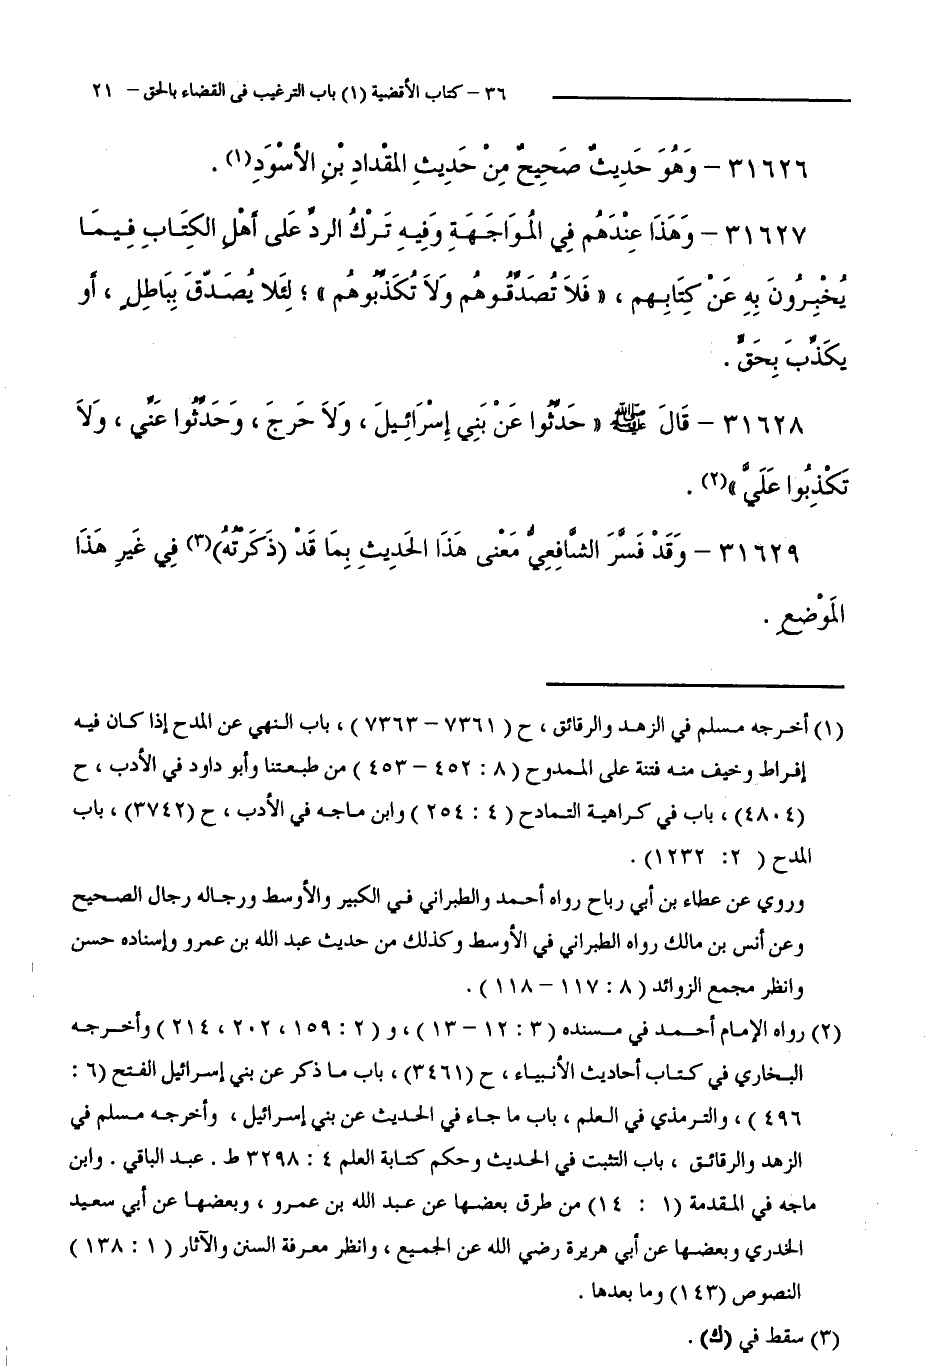 ٣٦ – كتاب الأقضية (١) باب الترغيب فى القضاء بالحق – ٢١
٣١٦٢٦ – وَهُوَ حَدِيثٌ صَحِيحٌ مِنْ حَدِيثِ المِقْدادِ بْنِ الأسْوَدِ(١) .
٣١٦٢٧ – وَهَذَا عِنْدَهُم فِي الْمُوَاجَهَةِ وَفِيهِ تَرْكُ الردِّ عَلى أهْلِ الكِتَابِ فِيمَا
يُخْبِرُونَ بِهِ عَنْ كِتَابِهِم ، « فَلاَ تُصَدِّقُوهُم وَلاَ تُكَذِّبُوهُم » ؛ لِئَلا يُصَدّقَ بِبَاطِلٍ ، أو
يكَذِّبَ بِحَقٍّ .
٣١٦٢٨ – قَالَ ﷺ « حَدِّثُوا عَنْ بَنِي إسْرَائِيلَ ، وَلاَ حَرجَ ، وَحَدِّثُوا عَنِّي ، وَلاَ
تَكْذِبُوا عَلَيَّ »(٢) .
٣١٦٢٩ – وَقَدْ فَسَّرَ الشَّافِعِيُّ مَعْنى هَذَا الحَدِيثِ بِمَا قَدْ (ذَكَرْتُهُ)(٣) فِي غَيرِ هَذَا
المَوْضعِ .
(١) أخرجه مسلم في الزهد والرقائق ، ح ( ٧٣٦١ – ٧٣٦٣ ) ، باب النهي عن المدح إذا كان فيه
إفراط وخيف منه فتنة على الممدوح ( ٨ : ٤٥٢ – ٤٥٣ ) من طبعتنا وأبو داود في الأدب ، ح
(٤٨٠٤) ، باب في كراهية التمادح ( ٤ : ٢٥٤ ) وابن ماجه في الأدب ، ح (٣٧٤٢) ، باب
المدح ( ٢ : ١٢٣٢) .
وروي عن عطاء بن أبي رباح رواه أحمد والطبراني في الكبير والأوسط ورجاله رجال الصحيح
وعن أنس بن مالك رواه الطبراني في الأوسط وكذلك من حديث عبد الله بن عمرو وإسناده حسن
وانظر مجمع الزوائد ( ٨ : ١١٧ – ١١٨ ) .
(٢) رواه الإمام أحمد في مسنده ( ٣ : ١٢ – ١٣ ) ، و ( ٢ : ١٥٩ ، ٢٠٢ ، ٢١٤ ) وأخرجه
البخاري في كتاب أحاديث الأنبياء ، ح (٣٤٦١) ، باب ما ذكر عن بني إسرائيل الفتح (٦ :
٤٩٦ ) ، والترمذي في العلم ، باب ما جاء في الحديث عن بني إسرائيل ، وأخرجه مسلم في
الزهد والرقائق ، باب التثبت في الحديث وحكم كتابة العلم ٤ : ٣٢٩٨ ط . عبد الباقي . وابن
ماجه في المقدمة (١ : ١٤) من طرق بعضها عن عبد الله بن عمرو ، وبعضها عن أبي سعيد
الخدري وبعضها عن أبي هريرة رضي الله عن الجميع ، وانظر معرفة السنن والآثار ( ١ : ١٣٨ )
النصوص (١٤٣) وما بعدها .
(٣) سقط في (ك) .